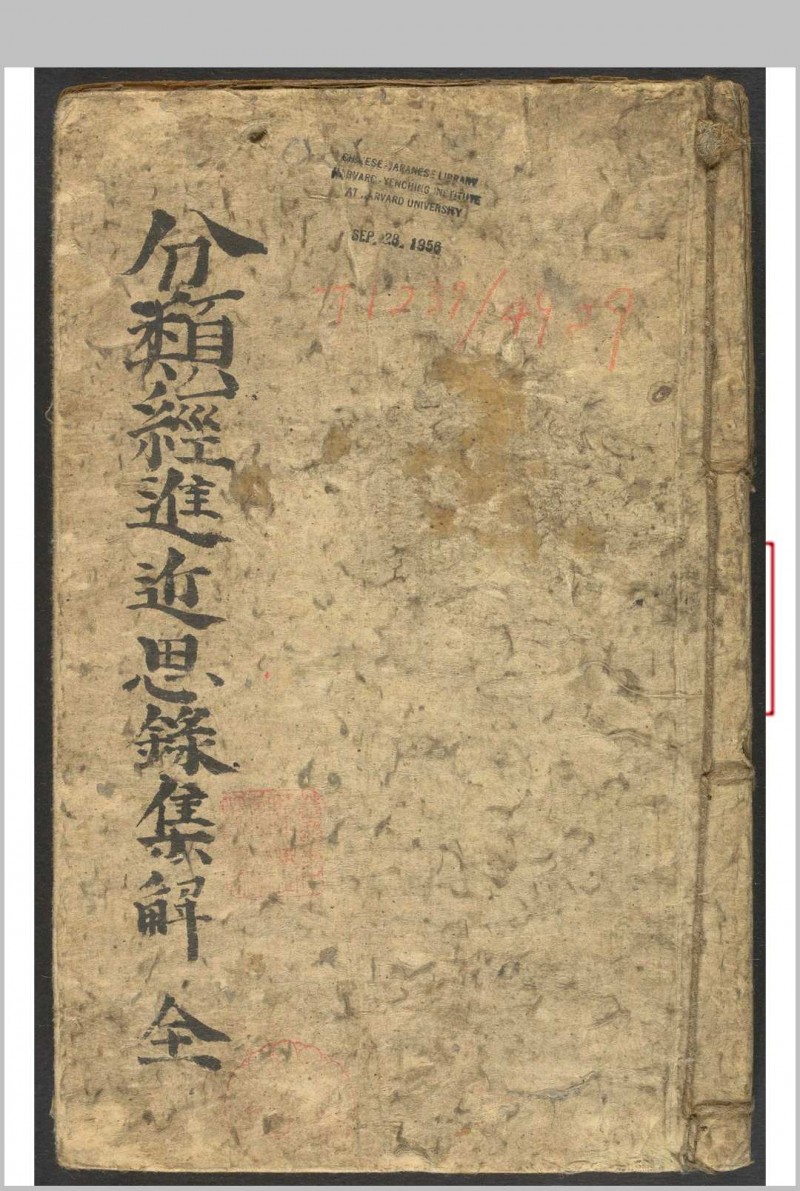 CHINESE-JAPANESE LIBRARY
HARVARD-YENCHING INSTITUTE
AT HARVARD UNIVERSITY
SEP. 28. 1956
TJ1239/4929
分類經進近思錄集解 全